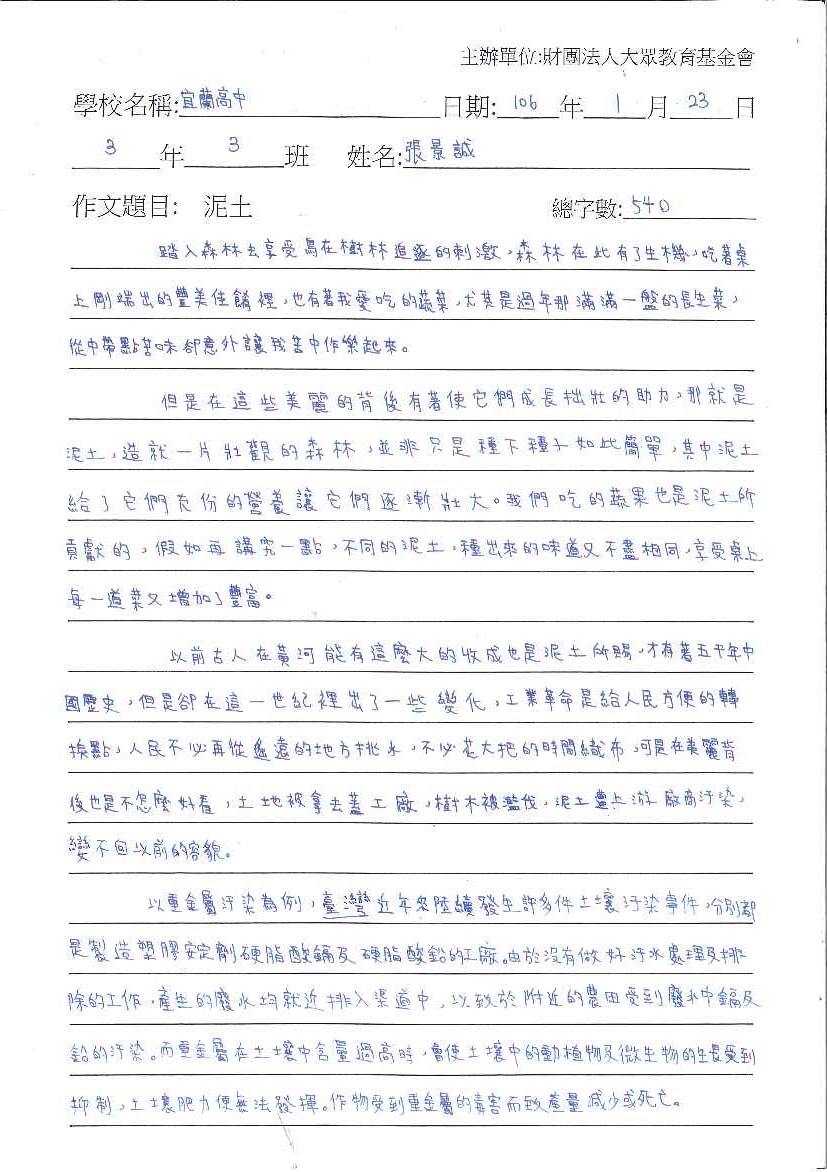 主辦單位:財團法人大眾教育基金會
學校名稱:宜蘭高中 日期: 106 年 1 月 23 日
3 年 3 班 姓名:張景誠
作文題目: 泥土 總字數: 540
踏入森林去享受鳥在樹林追逐的刺激,森林在此有了生機,吃著桌
上剛端出的豐美佳餚裡,也有著我愛吃的蔬菜,尤其是過年那滿滿一盤的長生菜,
從中帶點苦味卻意外讓我苦中作樂起來。
但是在這些美麗的背後有著使它們成長拙壯的助力,那就是
泥土,造就一片壯觀的森林,並非只是種下種子如此簡單,其中泥土
給了它們充份的營養讓它們逐漸壯大。我們吃的蔬果也是泥土所
貢獻的,假如再講究一點,不同的泥土,種出來的味道又不盡相同,享受桌上
每一道菜又增加了豐富。
以前古人在黃河能有這麼大的收成也是泥土所賜,才有著五千年中
國歷史,但是卻在這一世紀裡出了一些變化,工業革命是給人民方便的轉
捩點,人民不必再從遙遠的地方挑水,不必花大把的時間織布,可是在美麗背
後也是不怎麼好看,土地被拿去蓋工廠,樹木被濫伐,泥土遭上游廠商汙染,
變不回以前的容貌。
以重金屬汙染為例,臺灣近年來陸續發生許多件土壤汙染事件,分別都
是製造塑膠安定劑硬脂酸鎘及硬脂酸鉛的工廠。由於沒有做好汙水處理及排
除的工作,產生的廢水均就近排入渠道中,以致於附近的農田受到廢水中鎘及
鉛的汙染。而重金屬在土壤中含量過高時,會使土壤中的動植物及微生物的生長受到
抑制,土壤肥力便無法發揮。作物受到重金屬的毒害而致產量減少或死亡。